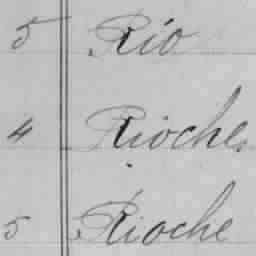 5 Rio
4 Rioche
5 Rioche